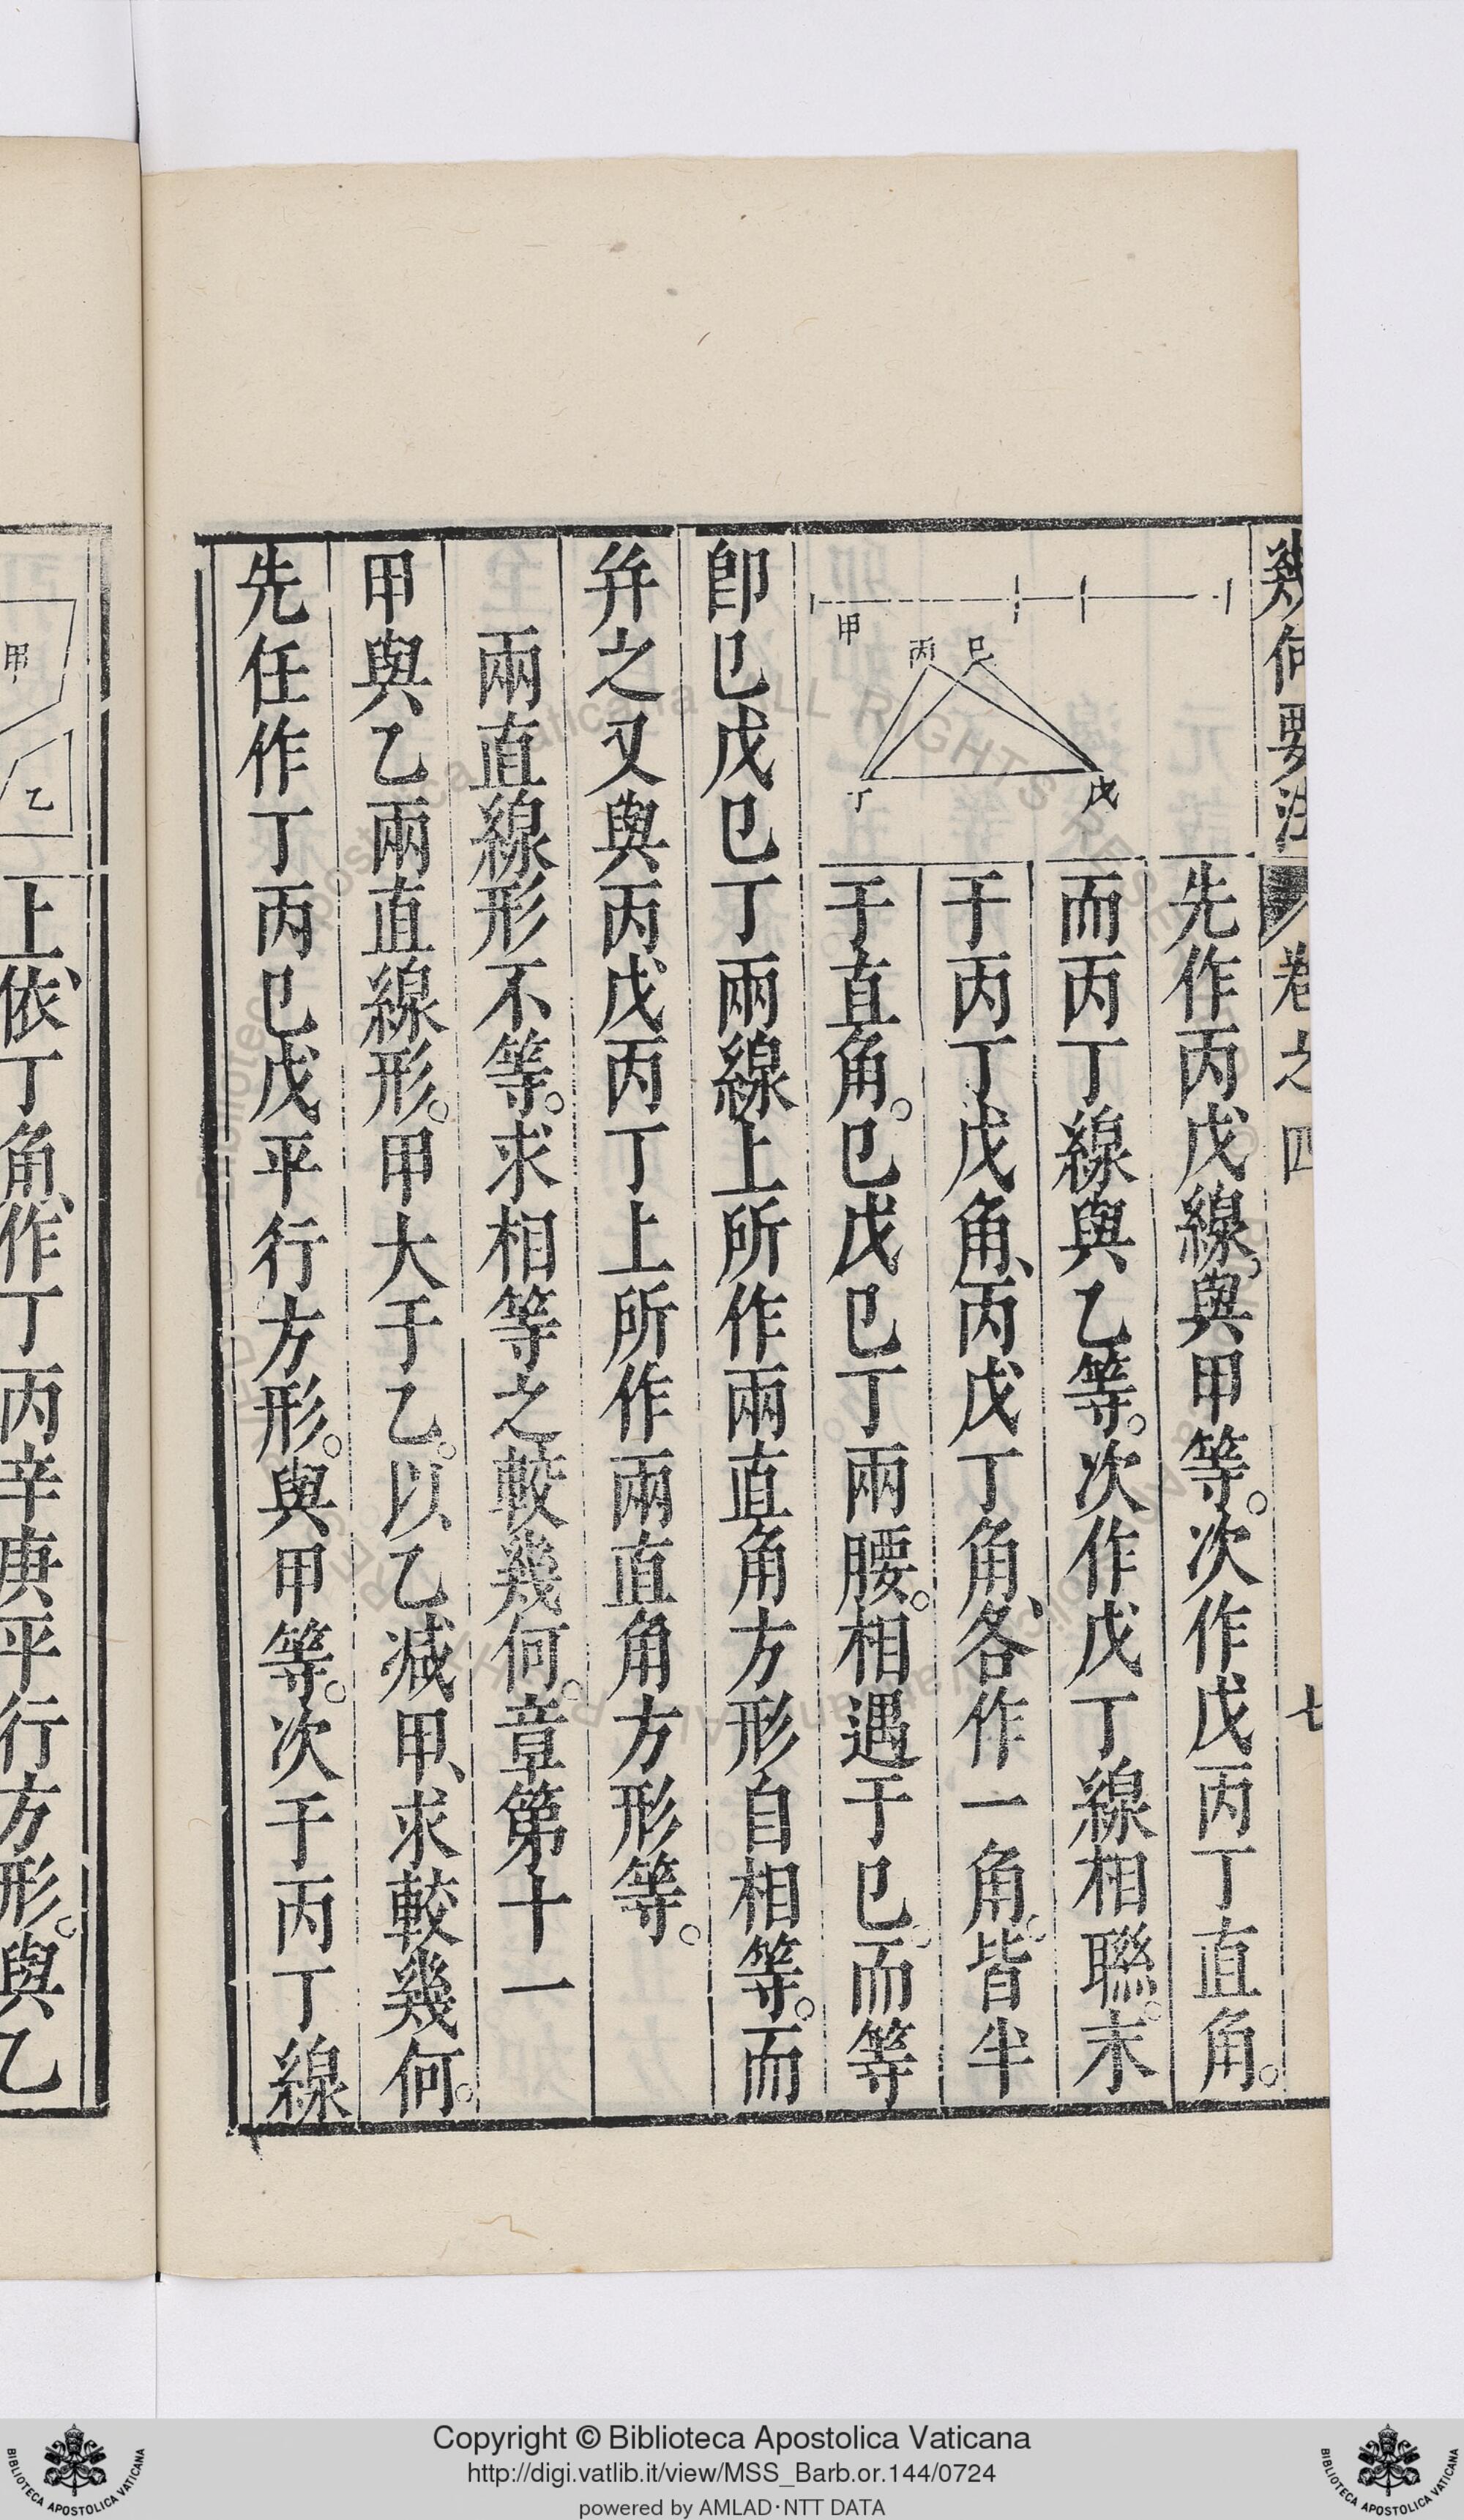 幾何要法 卷之四 七
甲
丙 巳
丁 戊
先作丙戊線與甲等。次作戊丙丁直角。
而丙丁線與乙等。次作戊丁線相聯。末
于丙丁戊角、丙戊丁角、各作一角。皆半
于直角。巳戊巳丁兩腰。相遇于巳。而等
卽巳戊巳丁兩線上所作兩直角方形自相等。而
幷之又與丙戊丙丁上所作兩直角方形等。
兩直線形不等。求相等之較幾何。章第十一
甲與乙兩直線形。甲大于乙。以乙減甲、求較幾何。
先任作丁丙巳戊平行方形。與甲等。次于丙丁線
甲
乙
上、依丁角、作丁丙辛庚平行方形。與乙
Copyright © Biblioteca Apostolica Vaticana
http://digi.vatlib.it/view/MSS_Barb.or.144/0724
powered by AMLAD·NTT DATA
BIBLIOTECA APOSTOLICA VATICANA
BIBLIOTECA APOSTOLICA VATICANA